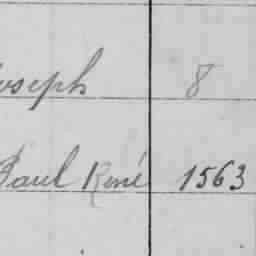 oseph 8
Paul René 1563